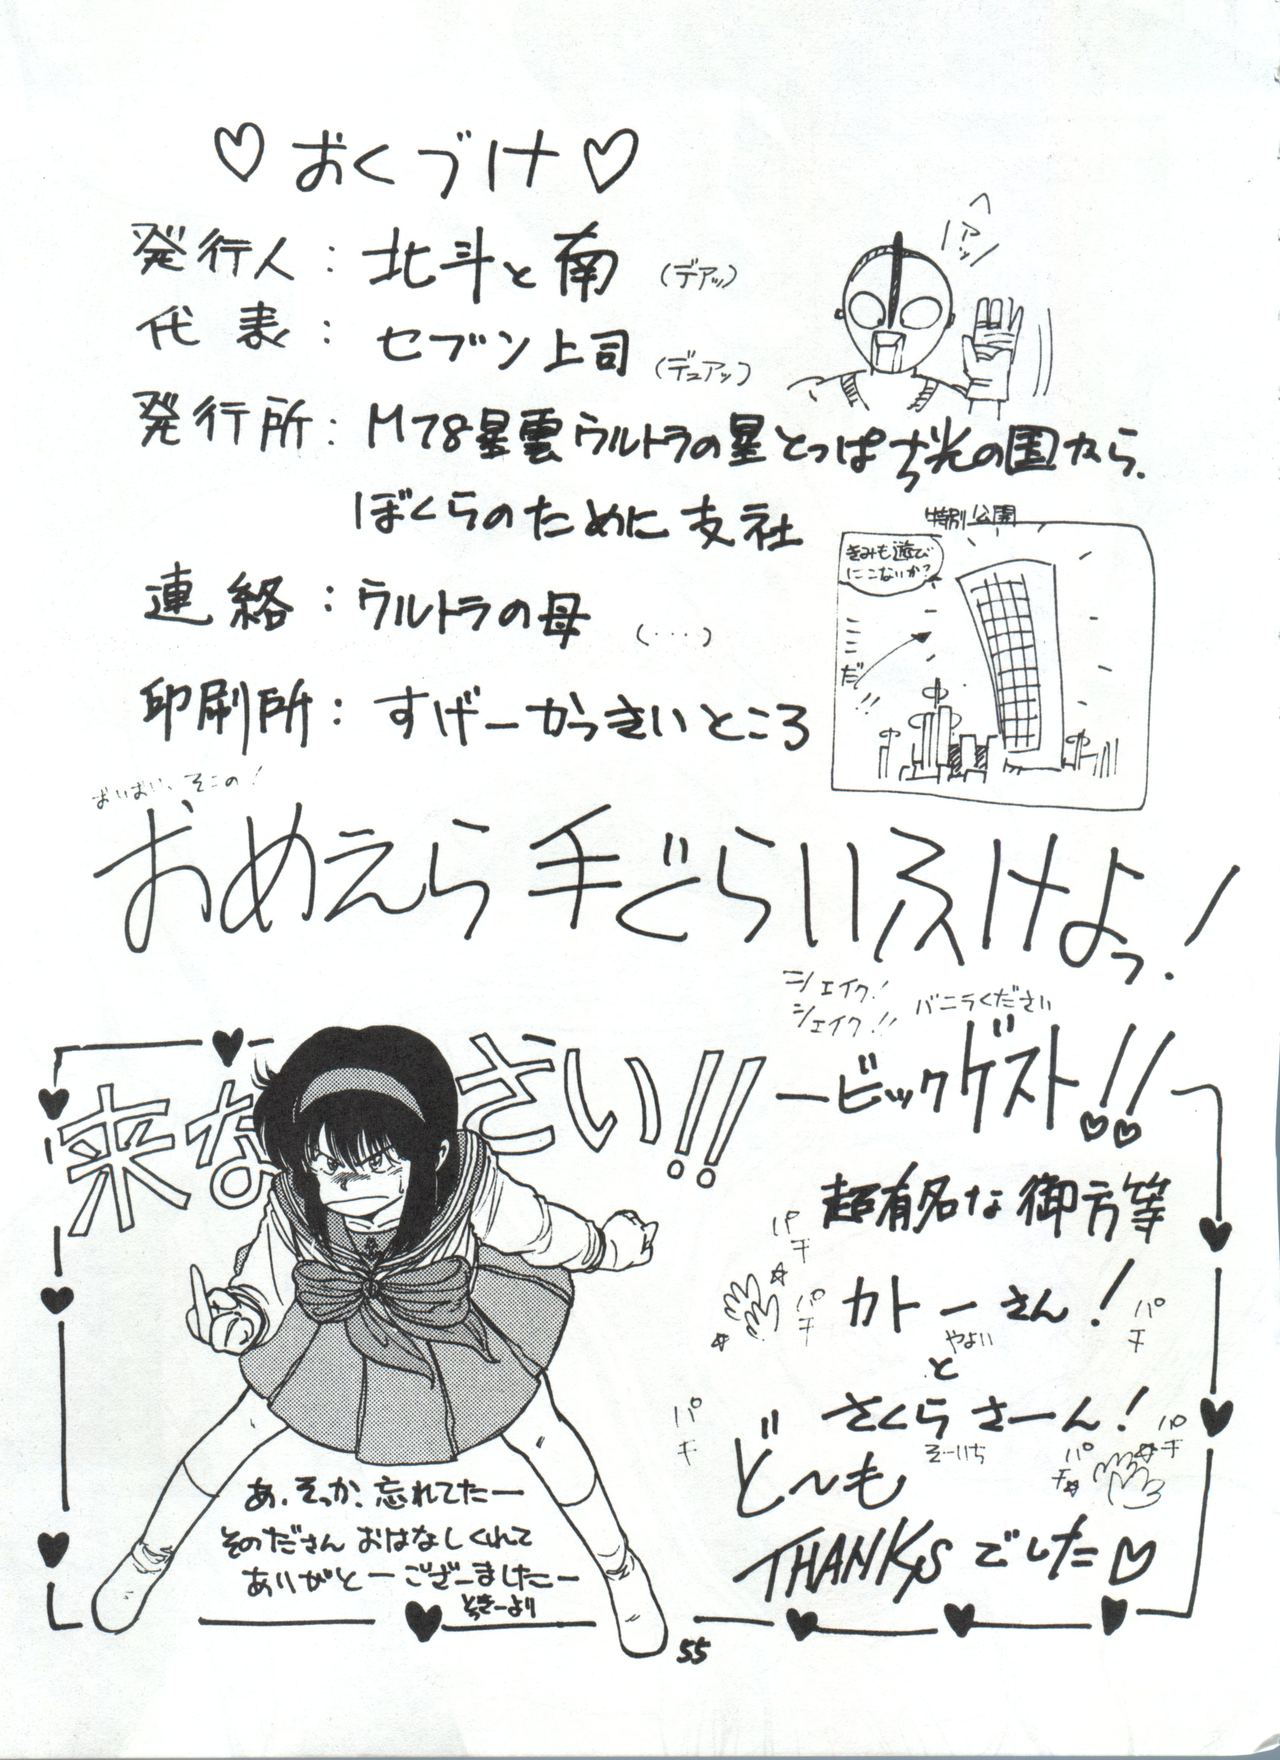 ♡おくづけ♡
発行人：北斗と南（デアッ）
代表：セブン上司（デュアッ）
ヘアッ
発行所：M78星雲ウルトラの星とっぱち光の国から
ぼくらのために支社
連絡：ウルトラの母（…）
印刷所：すげーかっさいところ
特別公園
きみも遊び
にこないか？
だ!!
おいおい、そこの！
おめえら手ぐらいふけよっ！
シェイク！
シェイク!!
バニラください
来なさい!!
ビックゲスト!!
超有名な御方等
パチ
カトーさん！
パチ
パチ
やよい
と
さくらさーん！
パチ
パチ
パチ
そーいち
ど〜も
THANKSでした♡
あ、そっか、忘れてたー
そのださんおはなしくれて
ありがとーございましたー
とっきーより
55